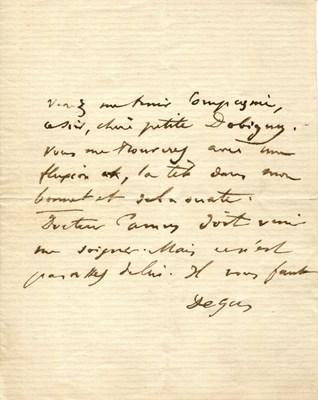 Venez me tenir compagnie,
ce soir, chère petite Dobigny.
Vous me trouverez avec une
fluxion et, la tête dans mon
bonnet et de la ouate.
Docteur Camus doit venir
me soigner. Mais ce n'est
pas assez de lui. Il vous faut
Degas